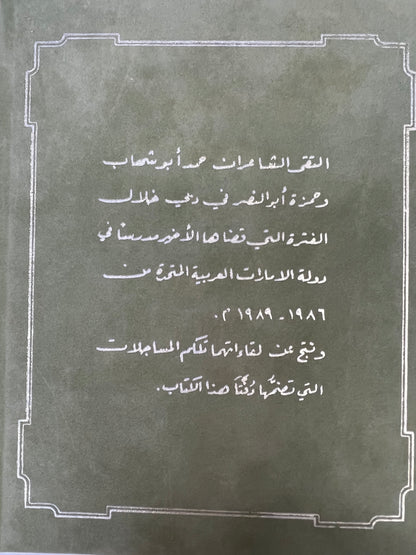 التقى الشاعران حمد أبو شهاب
وحمزة أبو النصر في دبي خلال
الفترة التي قضاها الأخير مدرسًا في
دولة الامارات العربية المتحدة من
١٩٨٦ - ١٩٨٩ م.
ونتج عن لقاءاتهما تلكم المساجلات
التي تضمُّها دُفَّتَا هذا الكتاب.